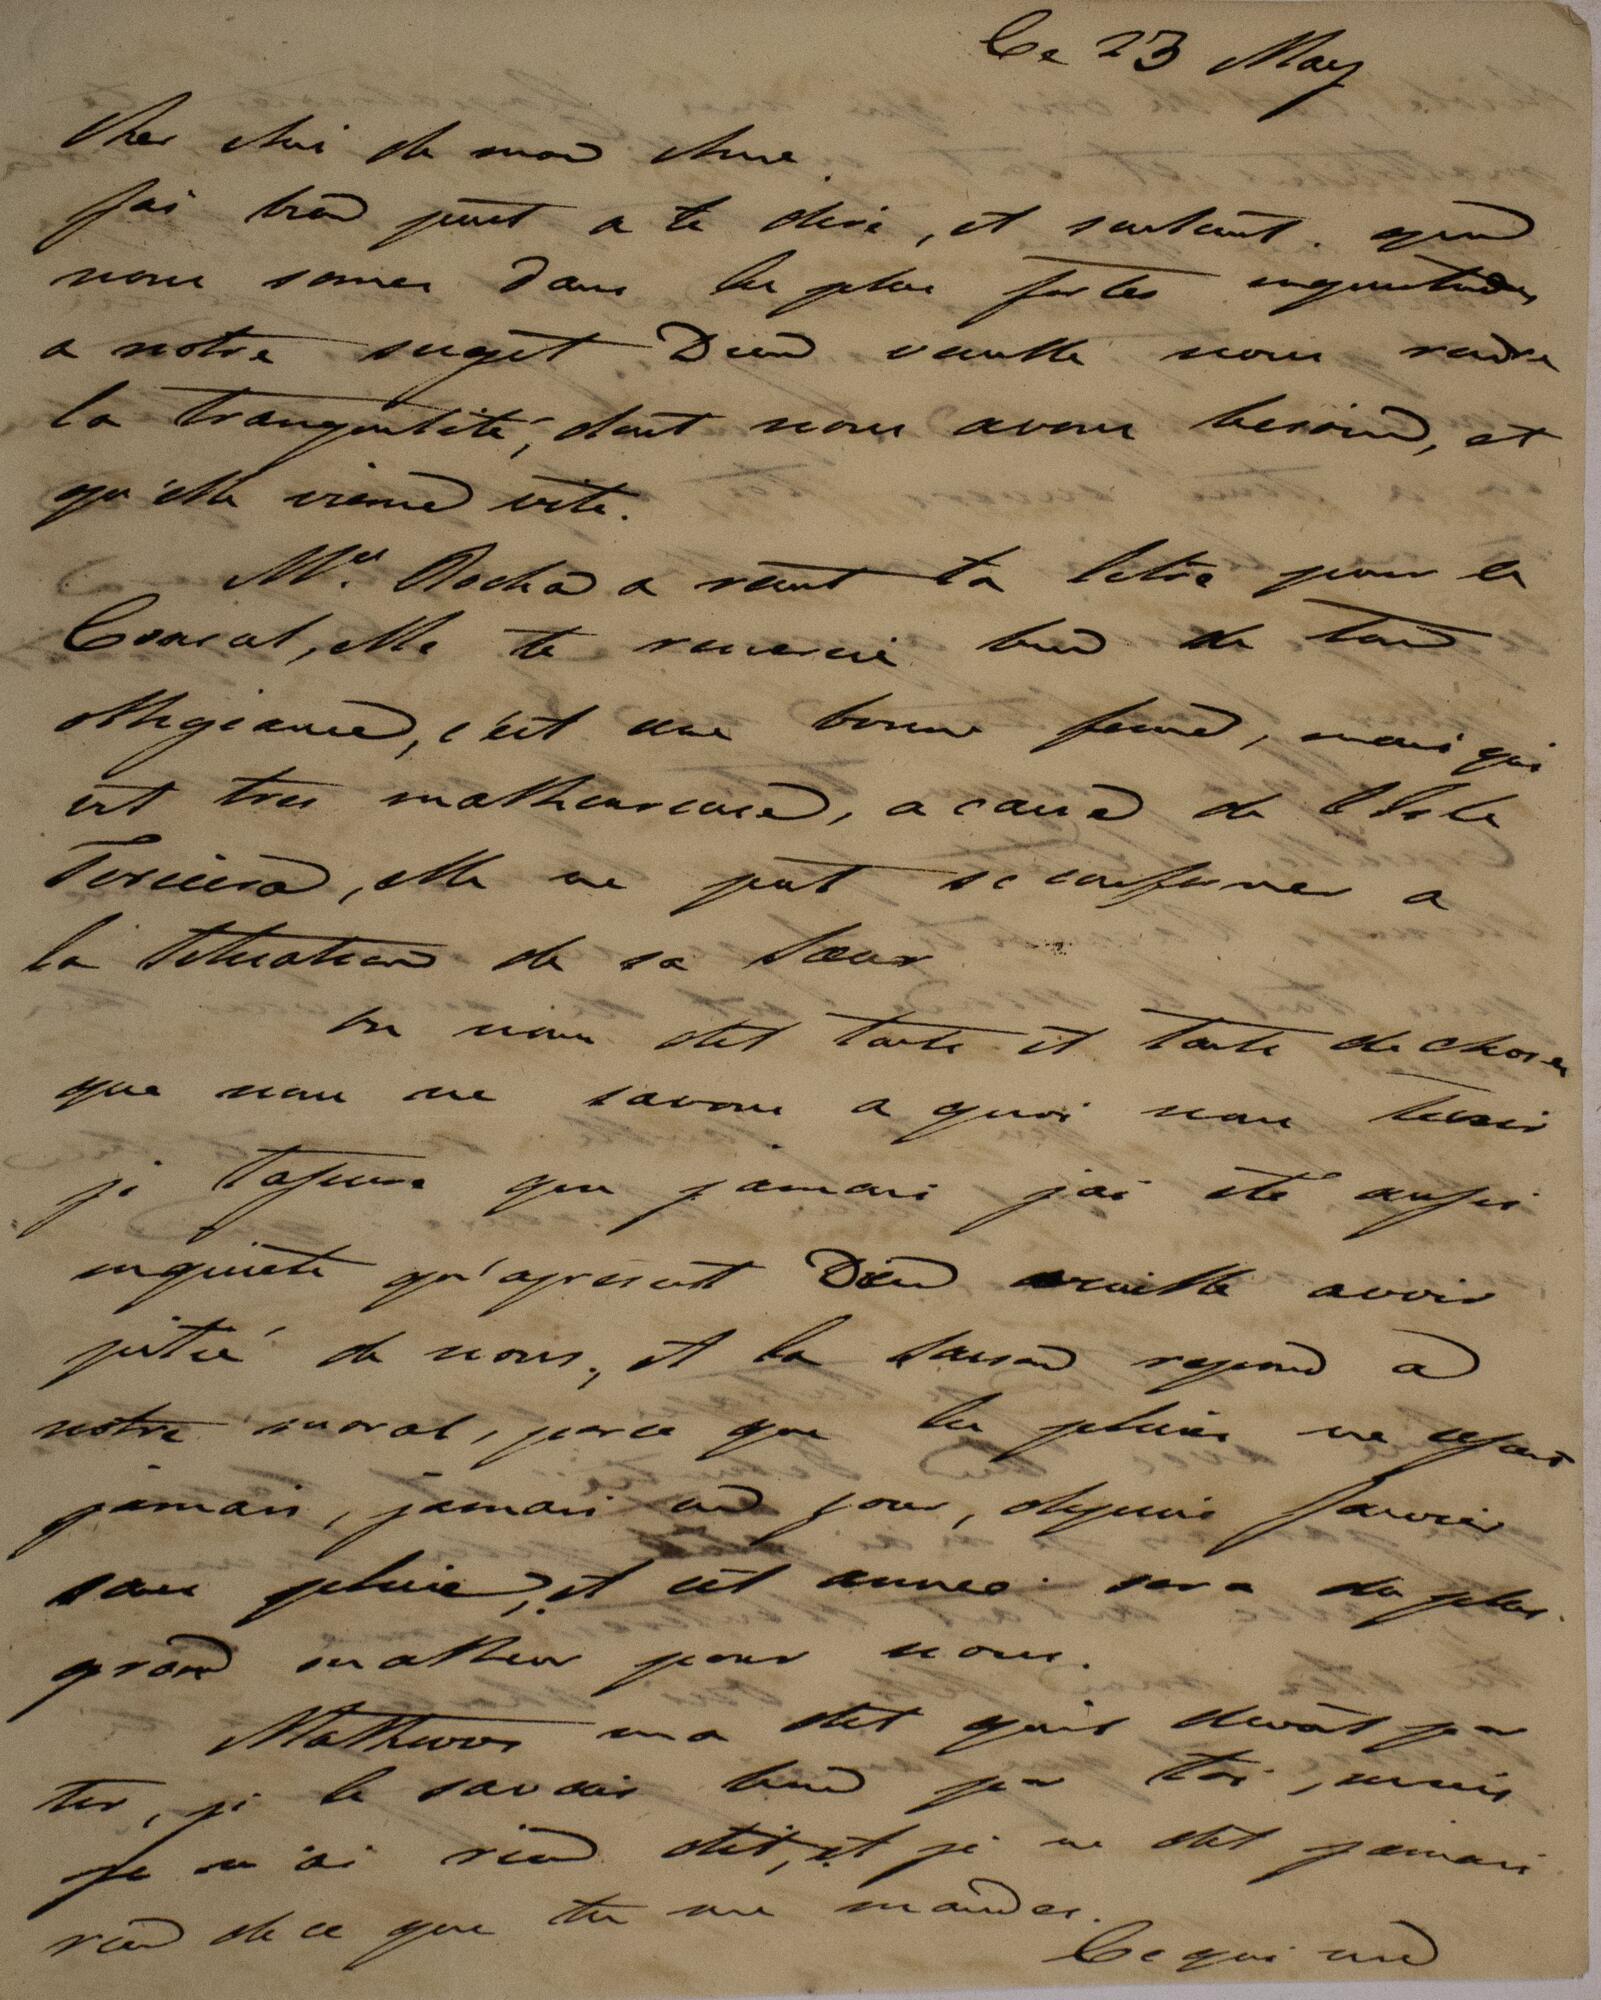 Ce 23 May
Cher Ami de mon Ame.
J'ai bien peut a te dire, et surtout. quand
nous somes Dans les plus fortes inquietudes
a notre suget Dieu veuille nous rendre
la tranquilité, dont nous avons besoin, et
qu'elle viene vite.
M.el Rocha a reçut ta letre pour le
Consul, elle te remercie bien de ton
obligeance, c'est une bonne feme, mais qui
est tres malheureuse, a cause de l'Isle
Terceira, elle ne put se conformer a
la situation de sa Sœur
On nous dit tante et tante de choses
que nous ne savons a quoi nous tenir
je t'assure que jamais j'ai eté aussi
inquiete qu'apresent Dieu veuille avoir
pitié de nous, et la Saison repond a
notre moral, parce que les pluies ne cessent
jamais, jamais un jour, depuis Janvier
sans pluie, et cet annee sera du plus
grand malheur pour nous.
Matheus m'a dit qu'il devoit par
tir, je le savais bien par toi, mais
je n'ai rien dit, et je ne dit jamais
rien de ce que tu me mandes.
Ce qui me